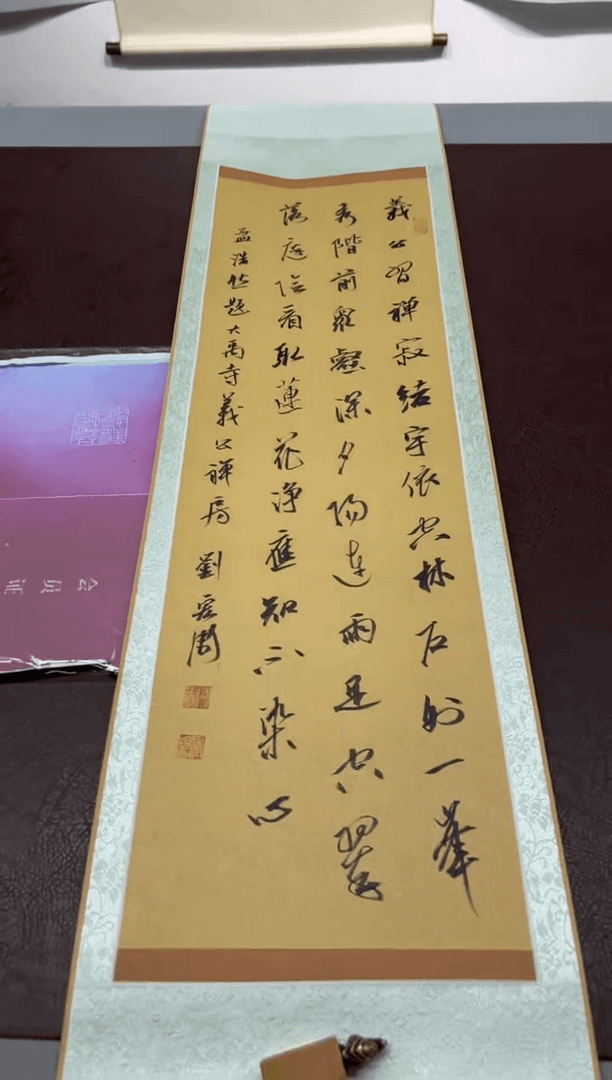 義公習禪寂結宇依空林户外一峯
秀階前衆壑深夕陽連雨足空翠
落庭陰看取蓮花净應知不染心
孟浩然題大禹寺義公禪房 劉
会员证